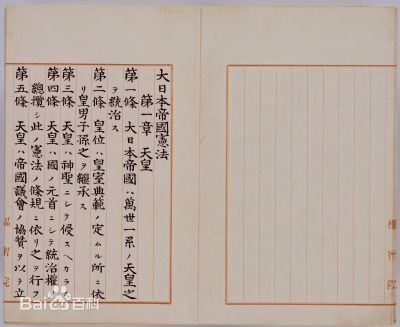 大日本帝國憲法
第一章 天皇
第一條 大日本帝國ハ萬世一系ノ天皇之
ヲ統治ス
第二條 皇位ハ皇室典範ノ定ムル所ニ依
リ皇男子孫之ヲ繼承ス
第三條 天皇ハ神聖ニシテ侵スヘカラス
第四條 天皇ハ國ノ元首ニシテ統治權ヲ
總攬シ此ノ憲法ノ條規ニ依リ之ヲ行フ
第五條 天皇ハ帝國議會ノ協贊ヲ以テ立
樞密院
樞密院
Bai百科